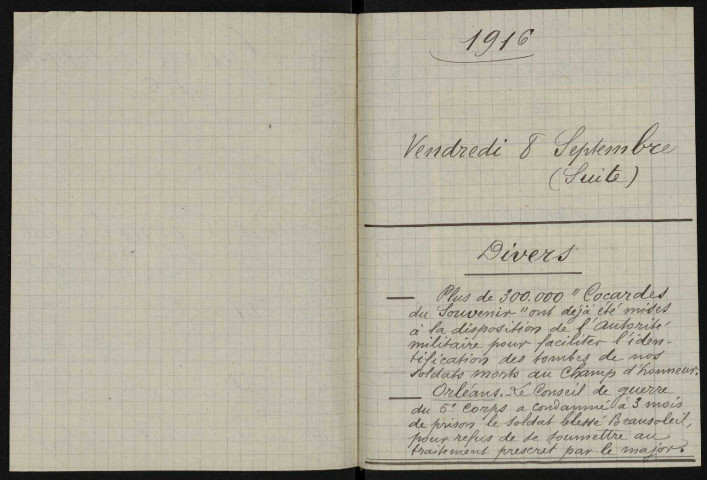 1916
Vendredi 8 Septembre
(Suite)
Divers
— Plus de 300.000 "Cocardes
du Souvenir" ont déjà été mises
à la disposition de l'Autorité
militaire pour faciliter l'iden-
tification des tombes de nos
Soldats morts au Champ d'honneur.
— Orléans. Le Conseil de guerre
du 5e Corps a condamné à 3 mois
de prison le soldat blessé Beausoleil,
pour refus de se soumettre au
traitement prescrit par le major.